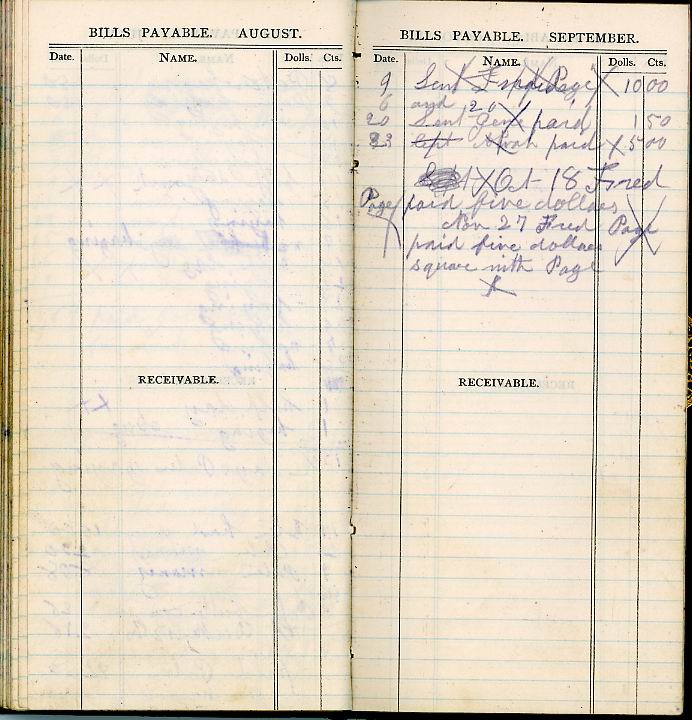 BILLS PAYABLE. AUGUST.
Date. NAME. Dolls. Cts.
RECEIVABLE.
BILLS PAYABLE. SEPTEMBER.
Date. NAME. Dolls. Cts.
9 Sent Page X 10 00
6 and 20
20 Sent Gene paid 1 50
23 Sept paid X 5 00
X Oct 18 Fred
Page paid five dollars
Nov 27 Fred Page
paid five dollars
square with Page
X
RECEIVABLE.